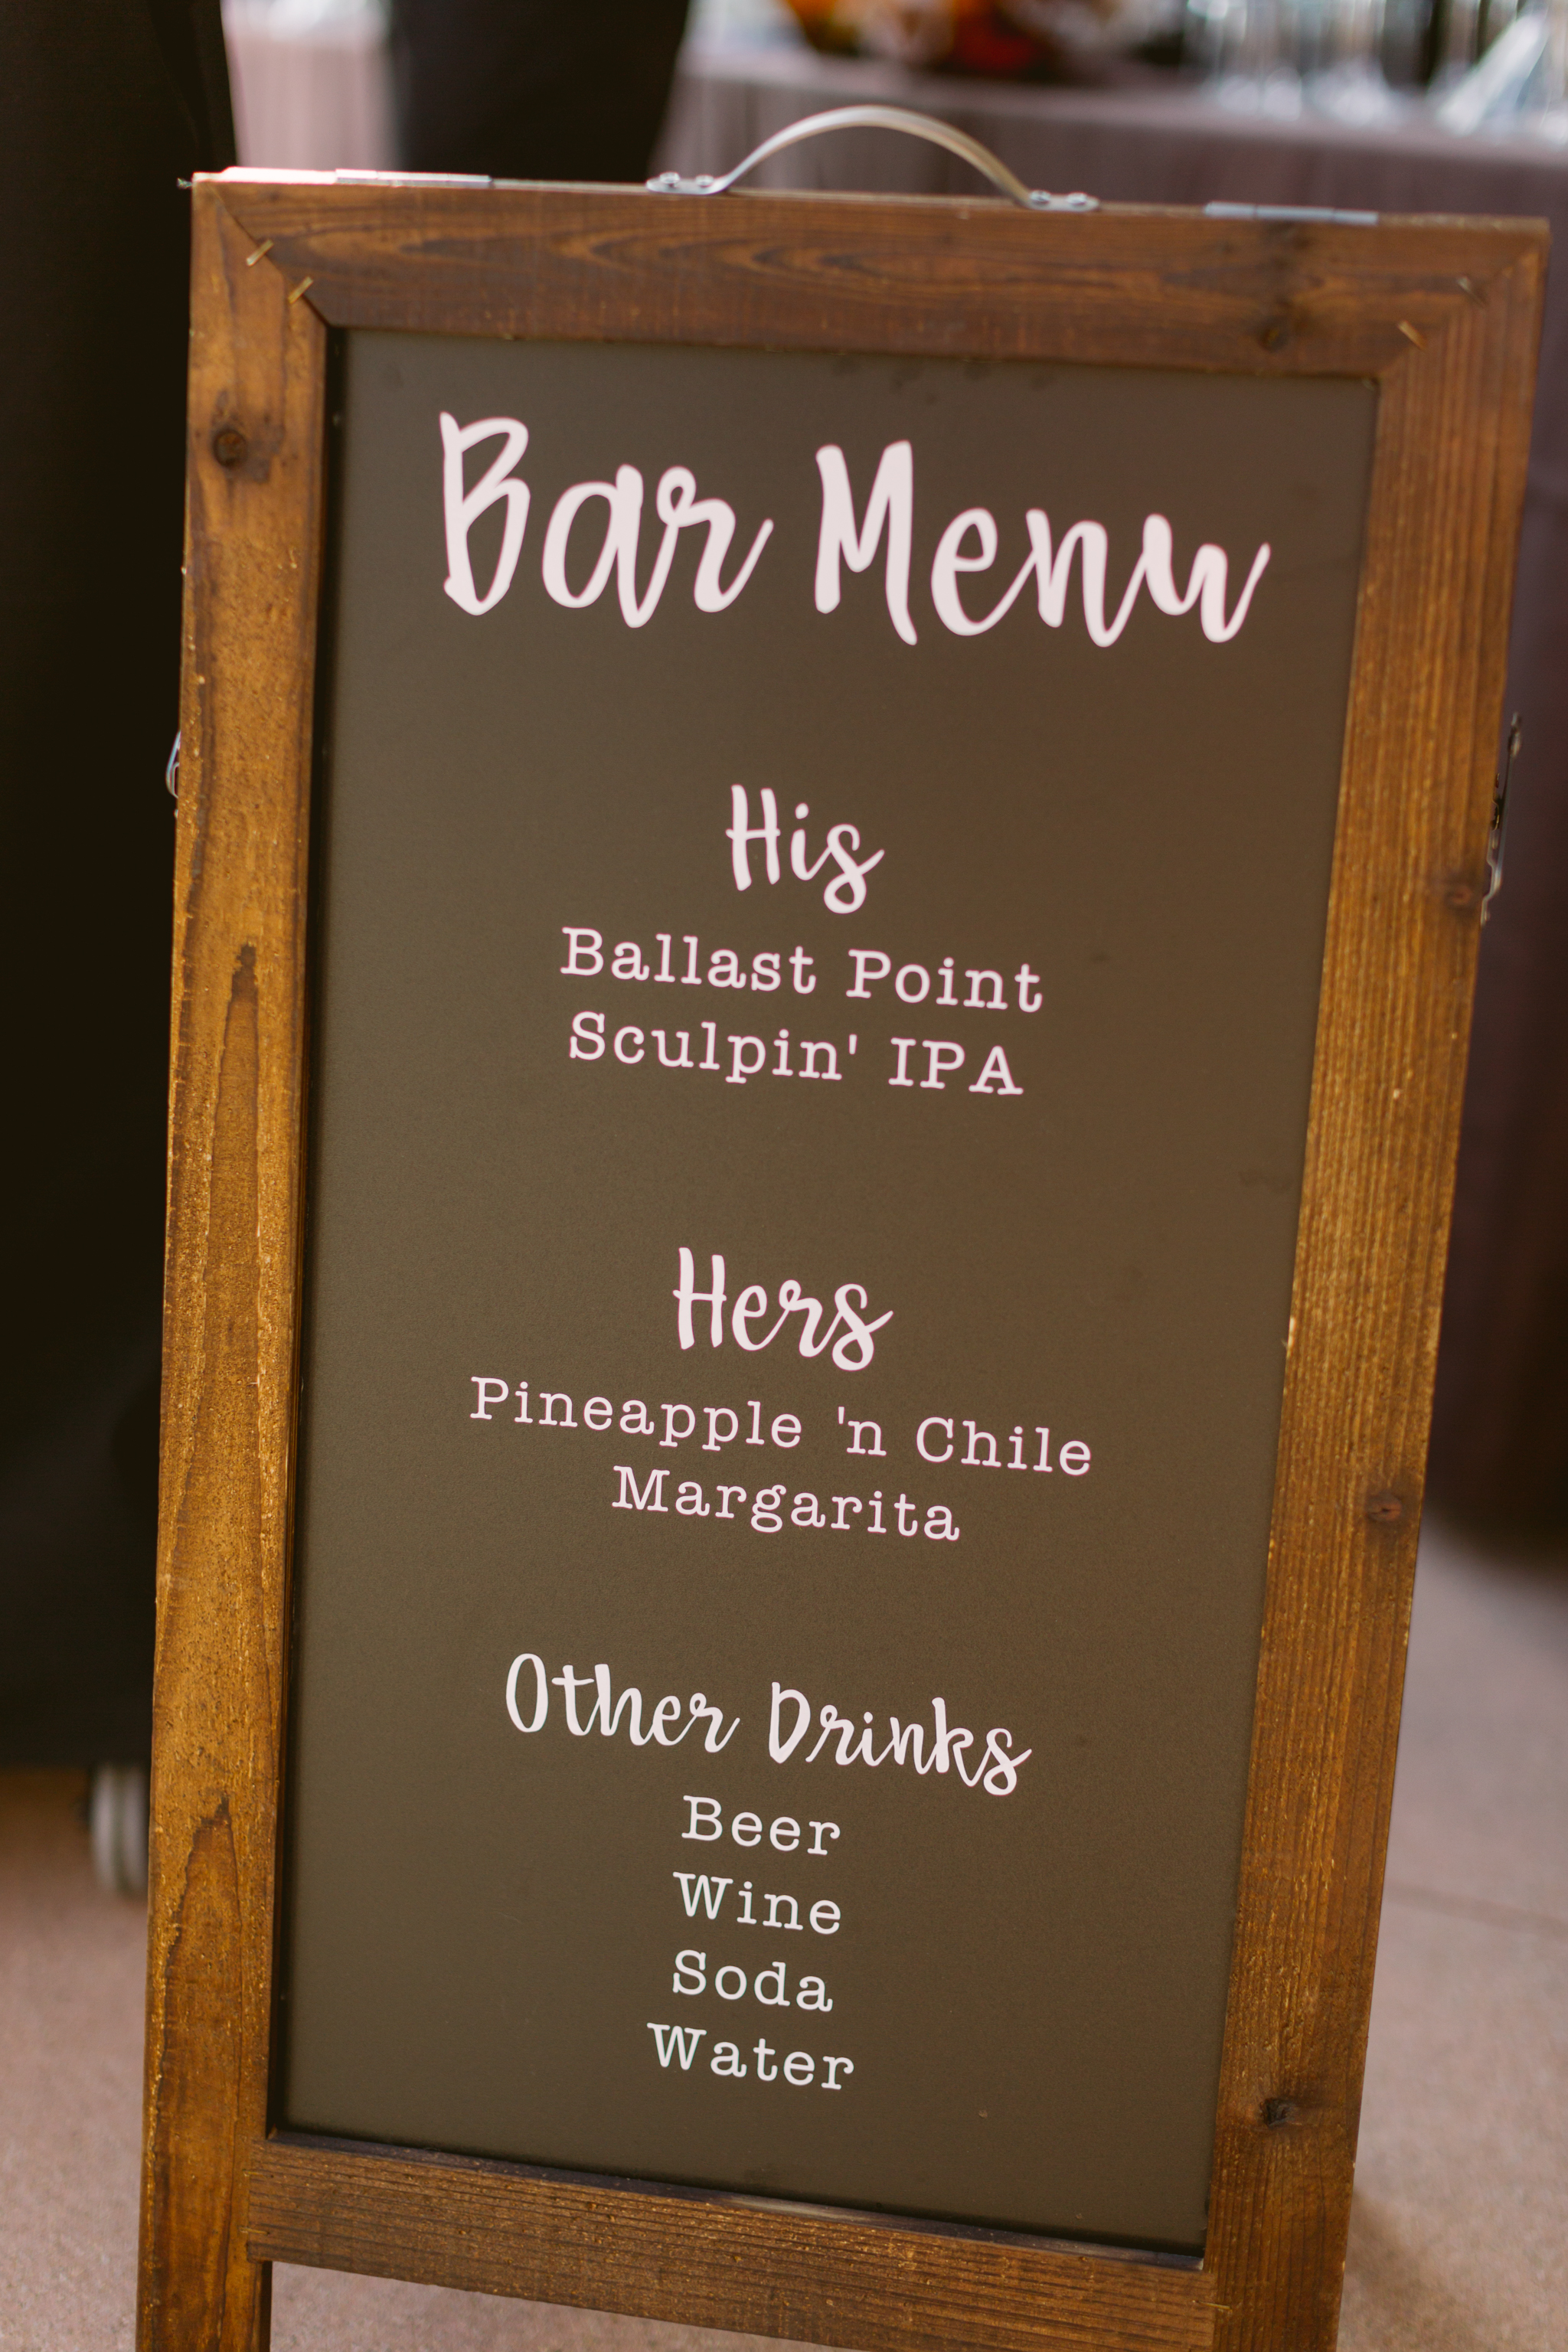 Bar Menu
His
Ballast Point
Sculpin' IPA
Hers
Pineapple 'n Chile
Margarita
Other Drinks
Beer
Wine
Soda
Water